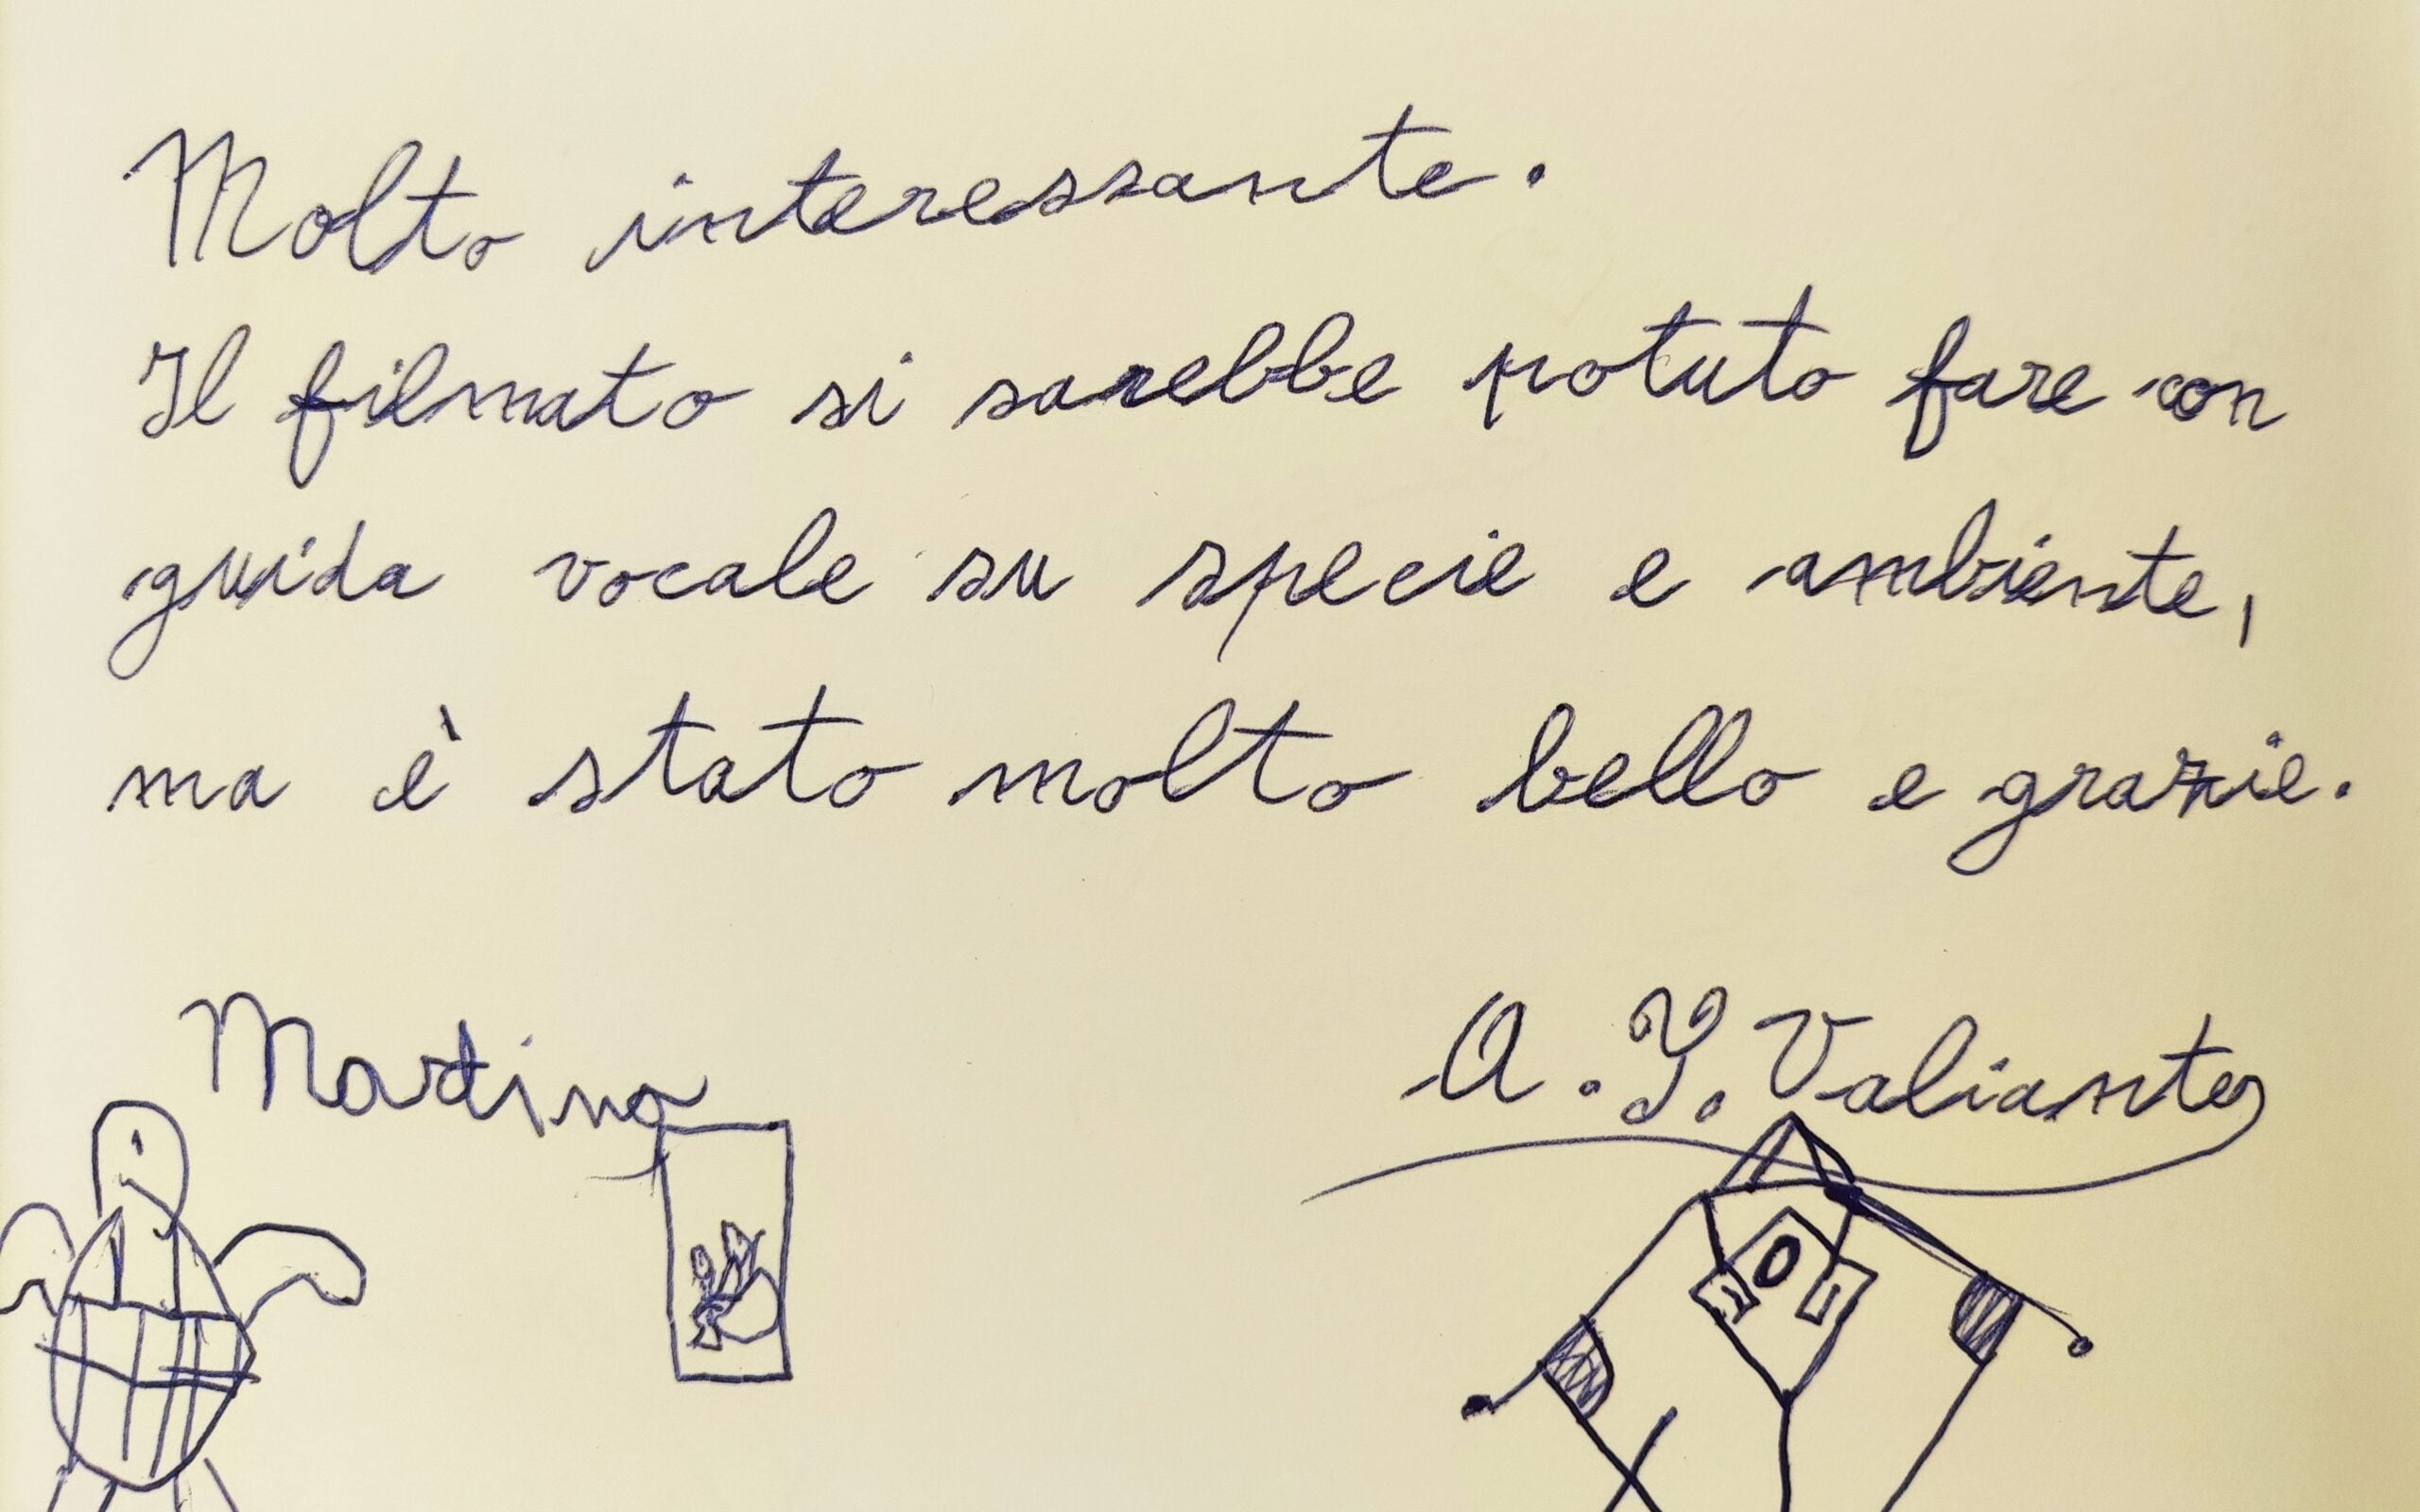 Molto interessante.
Il filmato si sarebbe potuto fare con
guida vocale su specie e ambiente,
ma è stato molto bello e grazie.
Martina
A. Y. Valiante